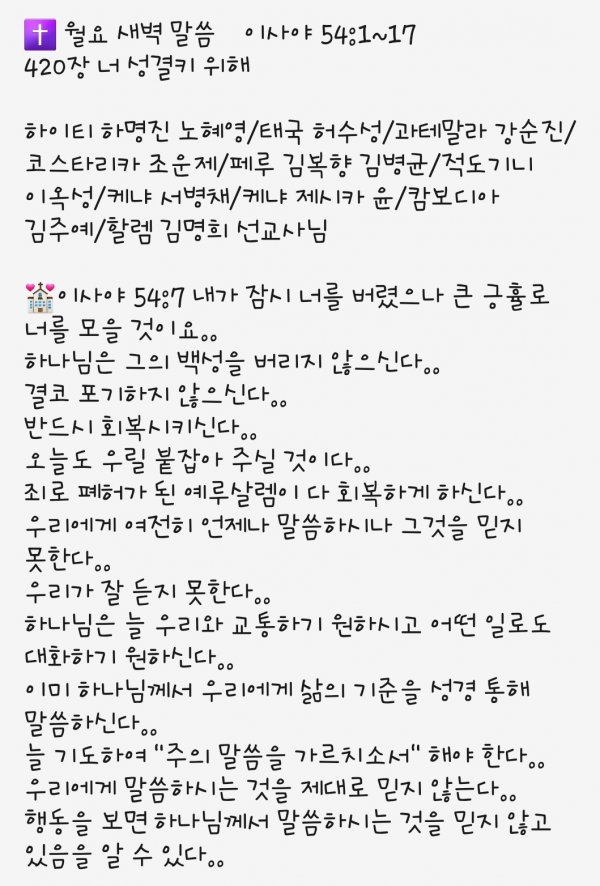 ✝️ 월요 새벽 말씀 이사야 54:1~17
420장 너 성결키 위해
하이티 하명진 노혜영/태국 허수성/과테말라 강순진/
코스타리카 조운제/페루 김복향 김병균/적도기니
이옥성/케냐 서병채/케냐 제시카 윤/캄보디아
김주예/할렘 김명희 선교사님
💒이사야 54:7 내가 잠시 너를 버렸으나 큰 긍휼로
너를 모을 것이요。。
하나님은 그의 백성을 버리지 않으신다。。
결코 포기하지 않으신다。。
반드시 회복시키신다。。
오늘도 우릴 붙잡아 주실 것이다。。
죄로 폐허가 된 예루살렘이 다 회복하게 하신다。。
우리에게 여전히 언제나 말씀하시나 그것을 믿지
못한다。。
우리가 잘 듣지 못한다。。
하나님은 늘 우리와 교통하기 원하시고 어떤 일로도
대화하기 원하신다。。
이미 하나님께서 우리에게 삶의 기준을 성경 통해
말씀하신다。。
늘 기도하여 "주의 말씀을 가르치소서" 해야 한다。。
우리에게 말씀하시는 것을 제대로 믿지 않는다。。
행동을 보면 하나님께서 말씀하시는 것을 믿지 않고
있음을 알 수 있다。。